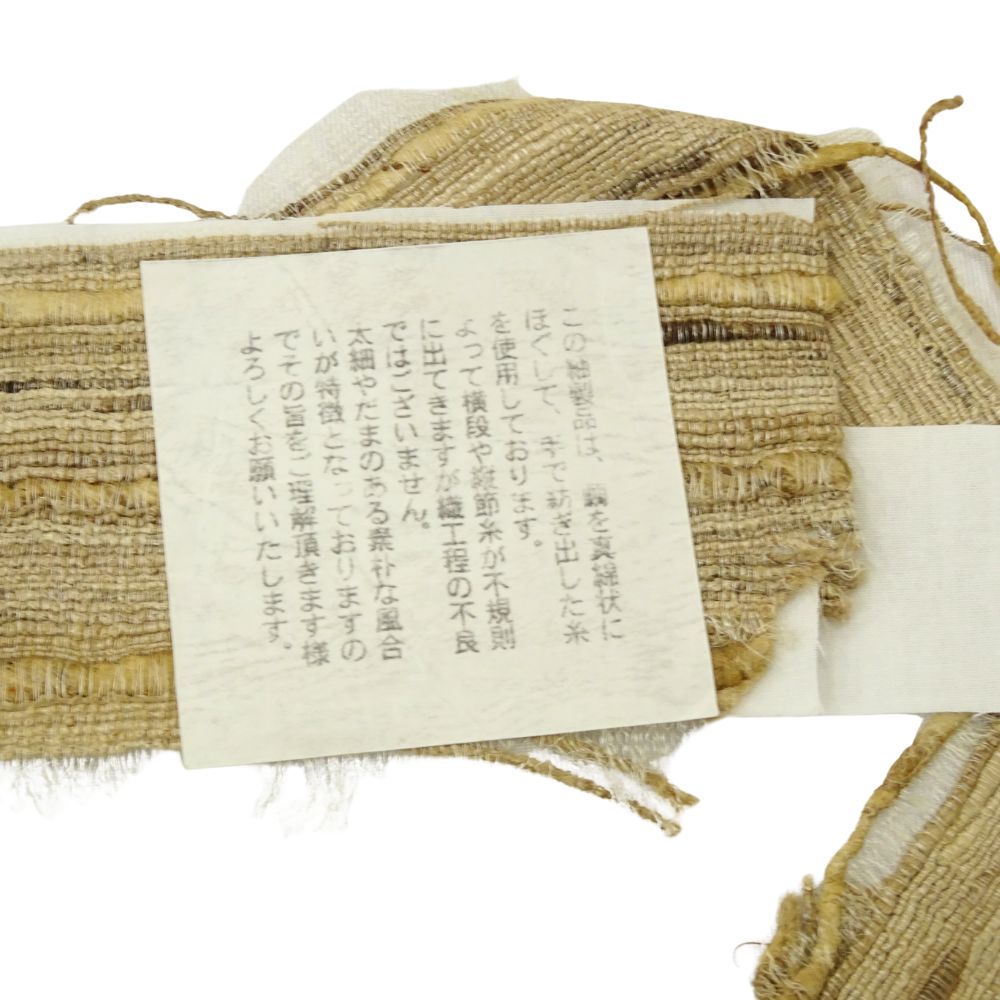 この紬製品は、繭を真綿状に
ほぐして、手で紡ぎ出した糸
を使用しております。
よって横段や縦節糸が不規則
に出てきますが織工程の不良
ではございません。
太細やたまのある素朴な風合
いが特徴となっておりますの
でその旨をご理解頂きます様
よろしくお願いいたします。